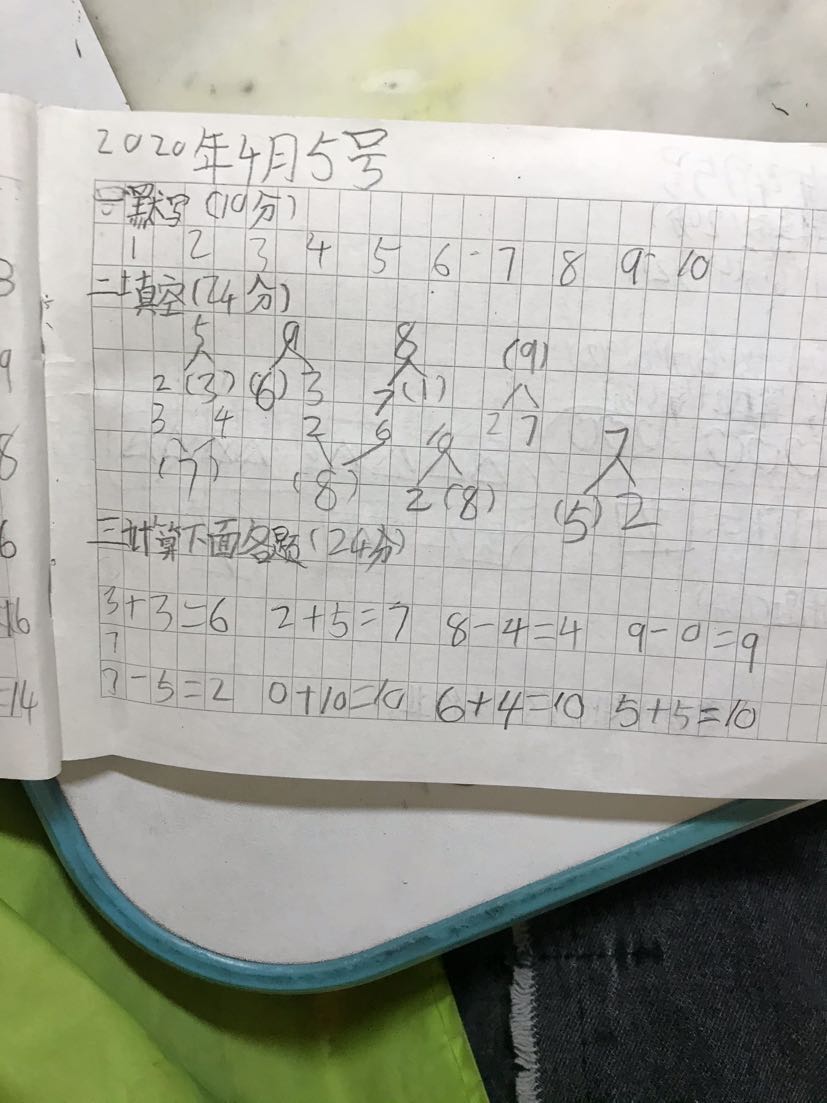 2020年4月5号
一默写(10分)
1 2 3 4 5 6 7 8 9 10
二填空(24分)
5 9 8 (9)
2 (3) (6) 3 7 (1) 2 7
3 4 2 6 10 7
(7) (8) 2 (8) (5) 2
三计算下面各题(24分)
3+3=6 2+5=7 8-4=4 9-0=9
7
7-5=2 0+10=10 6+4=10 5+5=10
3
9
8
6
16
=14